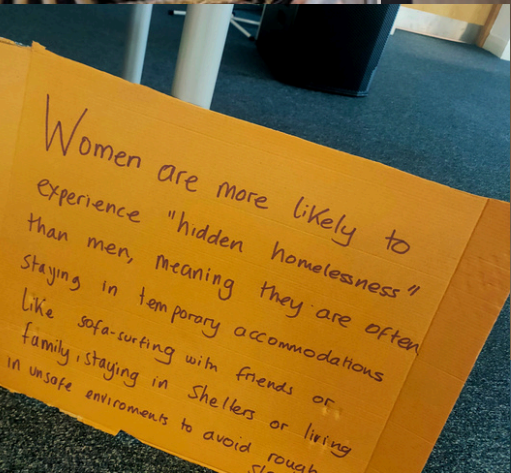 Women are more likely to
experience "hidden homelessness"
than men, meaning they are often
staying in temporary accommodations
like sofa-surfing with friends or
family, staying in shelters or living
in unsafe enviroments to avoid rough